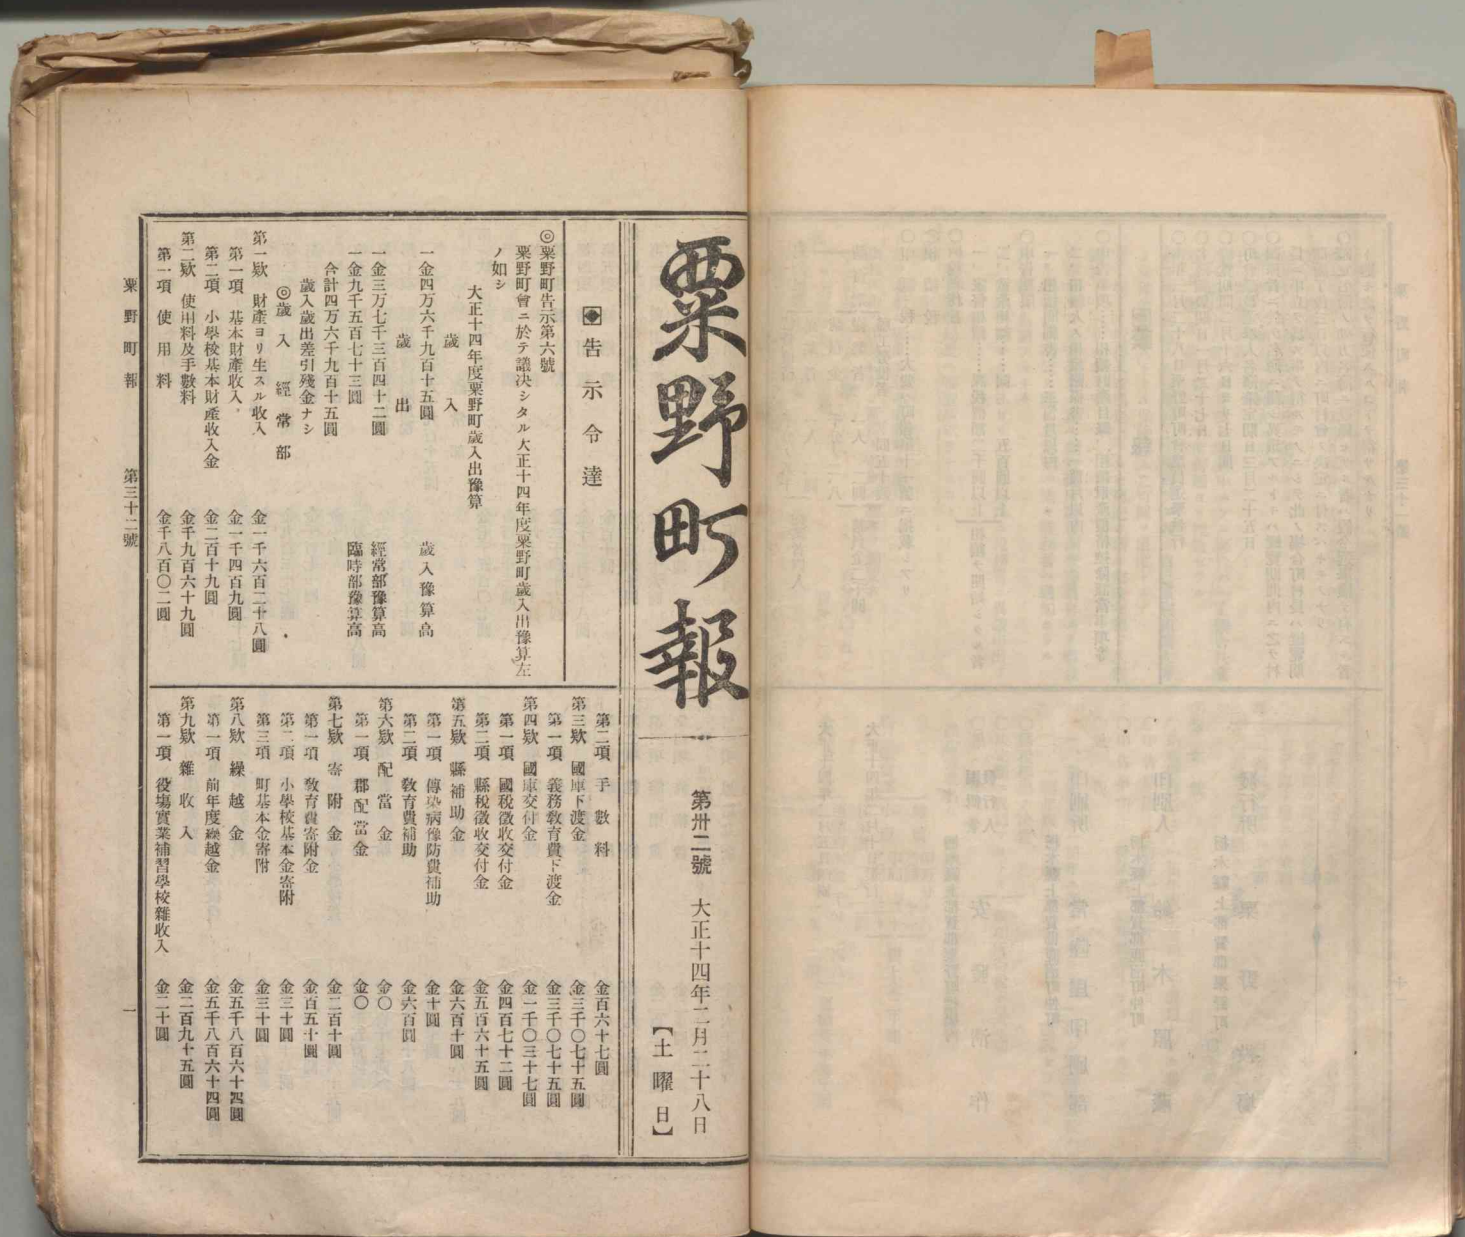 粟野町報
第卅二號　大正十四年二月二十八日
【土曜日】
告示令達
◎粟野町告示第六號
粟野町會ニ於テ議决シタル大正十四年度粟野町歲入出豫算左
ノ如シ
大正十四年度粟野町歲入出豫算
歲入
一金四万六千九百十五圓　歲入豫算高
歲出
一金三万七千三百四十二圓　經常部豫算高
一金九千五百七十三圓　臨時部豫算高
合計四万六千九百十五圓
歲入歲出差引殘金ナシ
◎歲入經常部
第一欵　財產ヨリ生スル收入　金一千六百二十八圓
第一項　基本財產收入　金一千四百九圓
第二項　小學校基本財產收入金　金二百十九圓
第二欵　使用料及手數料　金千九百六十九圓
第一項　使用料　金千八百〇二圓
第二項　手數料　金百六十七圓
第三欵　國庫下渡金　金三千〇七十五圓
第一項　義務敎育費下渡金　金三千〇七十五圓
第四欵　國庫交付金　金一千〇三十七圓
第一項　國稅徵收交付金　金四百七十二圓
第二項　縣稅徵收交付金　金五百六十五圓
第五欵　縣補助金　金六百十圓
第一項　傳染病豫防費補助　金十圓
第二項　敎育費補助　金六百圓
第六欵　配當金　金〇
第一項　郡配當金　金〇
第七欵　寄附金　金二百十圓
第一項　敎育費寄附金　金百五十圓
第二項　小學校基本金寄附　金三十圓
第三項　町基本金寄附　金三十圓
第八欵　繰越金　金五千八百六十四圓
第一項　前年度繰越金　金五千八百六十四圓
第九欵　雜收入　金二百九十五圓
第一項　役塲實業補習學校雜收入　金二十圓
粟野町報　第三十二號　一